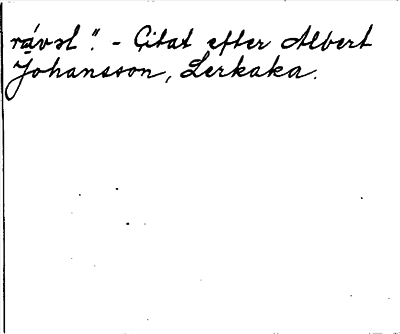 rávəl". - Citat efter Albert
Johansson, Lerkaka.